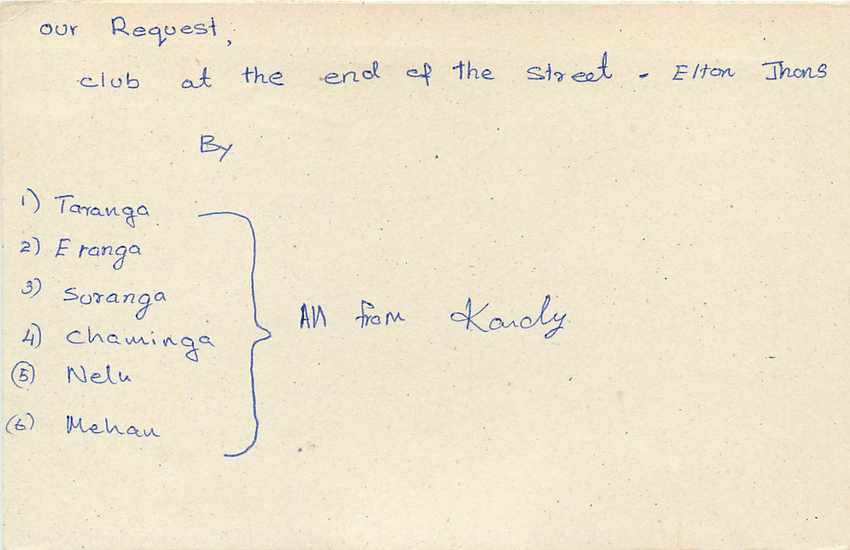 our Request,
club at the end of the street - Elton Jhons
By
1) Taranga
2) Eranga
3) Suranga
4) Chaminga
5) Nelu
(6) Mehan
All from Kandy